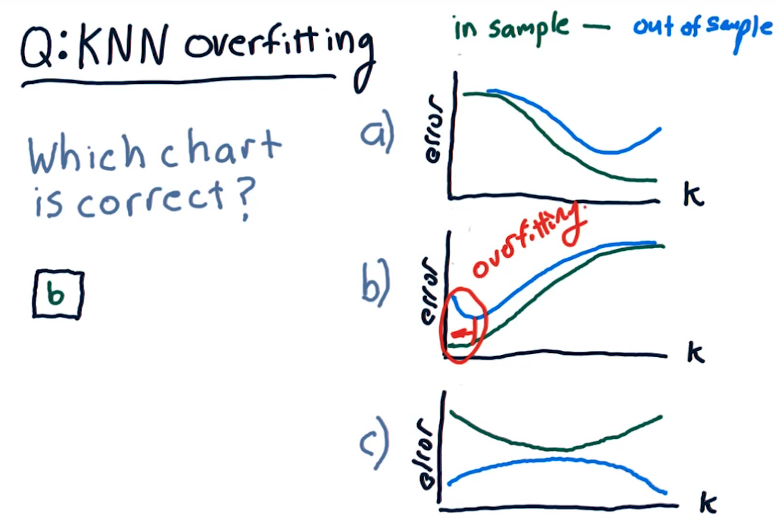 Q: KNN overfitting
in sample — out of sample
Which chart
is correct?
b
a)
error
k
b)
error
overfitting
k
c)
error
k